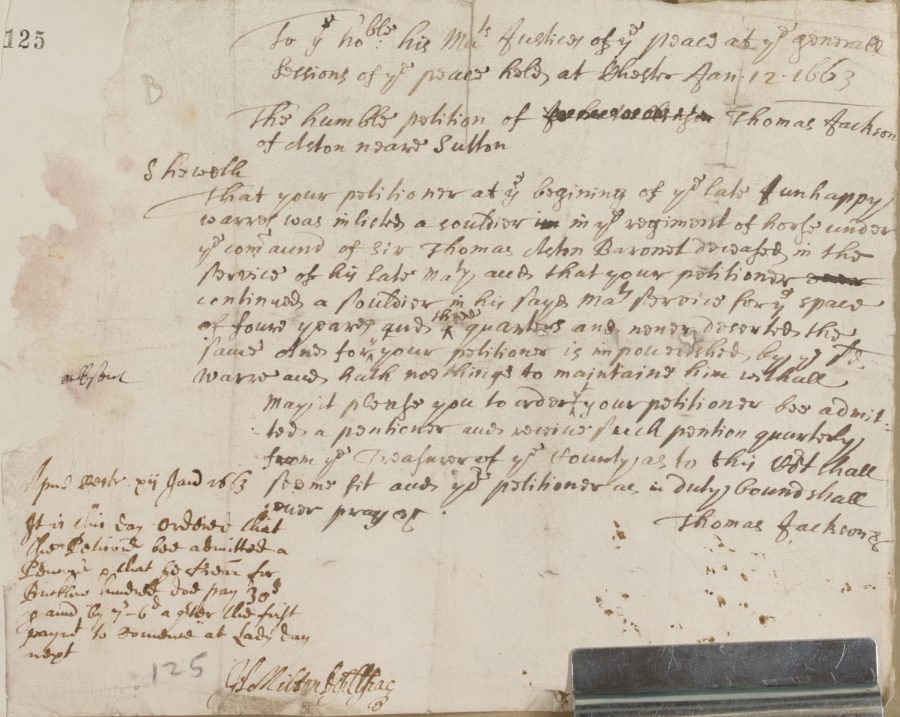 125
To ye ho:ble his Mats Justices of ye peace at ye generall
Sessions of ye peace held at Chester Jan. 12. 1663
The humble petition of Thomas Jackson
of Aston neare Sutton
Sheweth
That your petitioner at ye begining of ye late unhappy
warres was inlisted a souldier in ye regiment of horse under
ye comaund of Sir Thomas Aston Baronet deceased in the
service of his late Maty and that your petitioner
continued a souldier in his sayd Mats service for ye space
of foure yeares and three quarters and never deserted the
same And for yt your petitioner is impoverished by ye sd
warre and hath noethinge to maintaine him withall
May it please you to order yt your petitioner bee admit-
ted a pentioner and receive such pention quarterly
from ye Treasurer of ye County, as to this Court shall
seeme fit and yor petitioner as in duty bound shall
ever pray &c
Thomas Jackson
Apud Cestr xij Jan 1663
It is this day ordered that
the Peticoner bee admitted a
that he for
Bucklow hundred doe pay 30s
p and by 7s-6d a qter the first
paymt to at Lady day
next
125